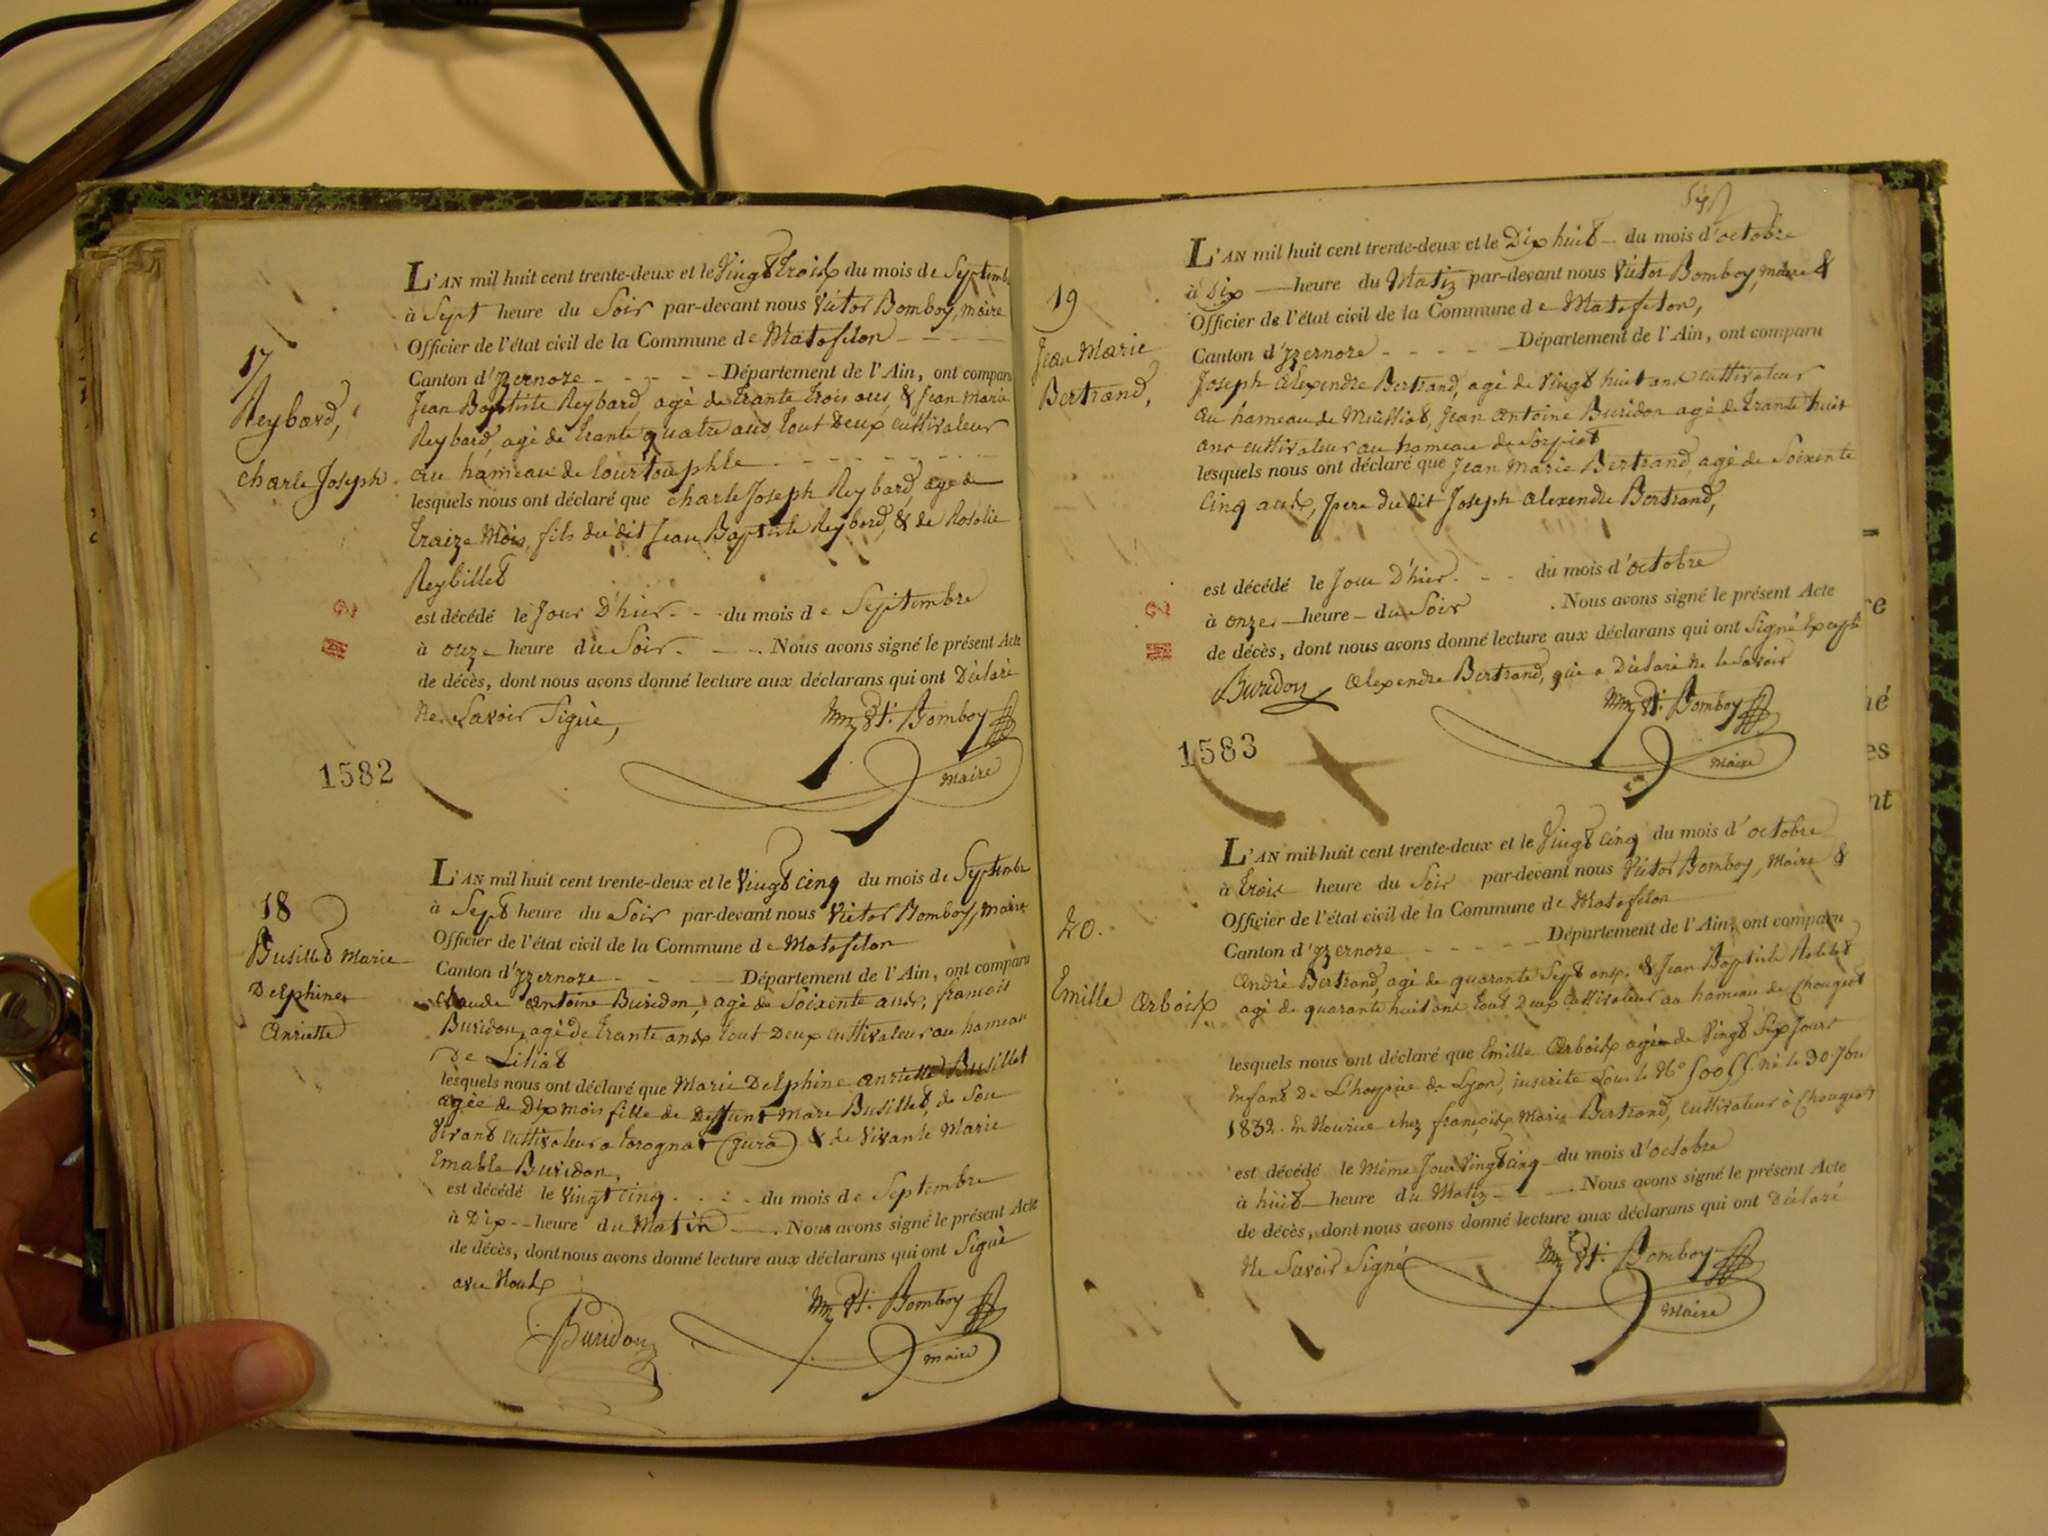 17
Reybard,
charle Joseph
L'AN mil huit cent trente-deux et le Vingt trois du mois de Septembre
à Sept heure du Soir par-devant nous Victor Bomboy, maire
Officier de l'état civil de la Commune de Matafelon
Canton d'yzernore Département de l'Ain, ont comparu
Jean Baptiste Reybard, agé de trante trois ans, & Jean marie
Reybard, agé de trante quatre ans tout Deux cultivateur
au hameau de
lesquels nous ont déclaré que charle Joseph Reybard, agé de
traize Mois, fils du dit Jean Baptiste Reybard, & de Rosalie
Reybillet
est décédé le Jour D'hier du mois de Septembre
à onze heure du Soir. Nous avons signé le présent Acte
de décès, dont nous avons donné lecture aux déclarans qui ont Déclaré
Ne Savoir Signé,
Bomboy
maire
1582
18
Busillet Marie
Delphine
Anriette
L'AN mil huit cent trente-deux et le Vingt cinq du mois de Septembre
à Sept heure du Soir par-devant nous Victor Bomboy, Maire
Officier de l'état civil de la Commune de Matafelon
Canton d'yzernore Département de l'Ain, ont comparu
Claude Antoine Buridon, agé de Soixente ans, francois
Buridon, agé de trante ans tout Deux cultivateur au hameau
de
lesquels nous ont déclaré que Marie Delphine Anriette Busillet
agée de Dix mois fille de Deffunt Marc Busillet, de Son
Vivant cultivateur a (Jura) & de Vivante Marie
Emable Buridon,
est décédé le Vingt cinq du mois de Septembre
à Dix heure du Matin. Nous avons signé le présent Acte
de décès, dont nous avons donné lecture aux déclarans qui ont Signé
avec Nous
Buridon
Bomboy
maire
19
Jean Marie
Bertrand,
L'AN mil huit cent trente-deux et le Dix huit du mois d'octobre
à Dix heure du Matin par-devant nous Victor Bomboy, maire &
Officier de l'état civil de la Commune de Matafelon,
Canton d'yzernore Département de l'Ain, ont comparu
Joseph Alexendre Bertrand, agé de Vingt huit ans cultivateur
au hameau de Jean Antoine Buridon agé de trante huit
ans cultivateur au hameau de
lesquels nous ont déclaré que Jean Marie Bertrand, agé de Soixente
Cinq ans, pere du dit Joseph Alexendre Bertrand,
est décédé le Jour D'hier du mois d'octobre
à onze heure du Soir. Nous avons signé le présent Acte
de décès, dont nous avons donné lecture aux déclarans qui ont Signé Excepté
Buridon Alexendre Bertrand, qui a Déclaré Ne le Savoir
Bomboy
maire
1583
20.
Emille Arbois
L'AN mil huit cent trente-deux et le Vingt cinq du mois d'octobre
à trois heure du Soir par-devant nous Victor Bomboy, Maire &
Officier de l'état civil de la Commune de Matafelon
Canton d'yzernore Département de l'Ain, ont comparu
André Bertrand, agé de quarante Sept ans, & Jean Baptiste
agé de quarante huit ans tout Deux Cultivateur au hameau de Chougeat
lesquels nous ont déclaré que Emille Arbois agée de Vingt Six Jours
Enfant De L'hospice de Lyon, inscrite Sous le No né le 30 7bre
1832. En Nourice chez françois Marie Bertrand, Cultivateur à Chougeat
est décédé le Même Jour Vingt cinq du mois d'octobre
à huit heure du Matin. Nous avons signé le présent Acte
de décès, dont nous avons donné lecture aux déclarans qui ont Déclaré
Ne Savoir Signé
Bomboy
Maire